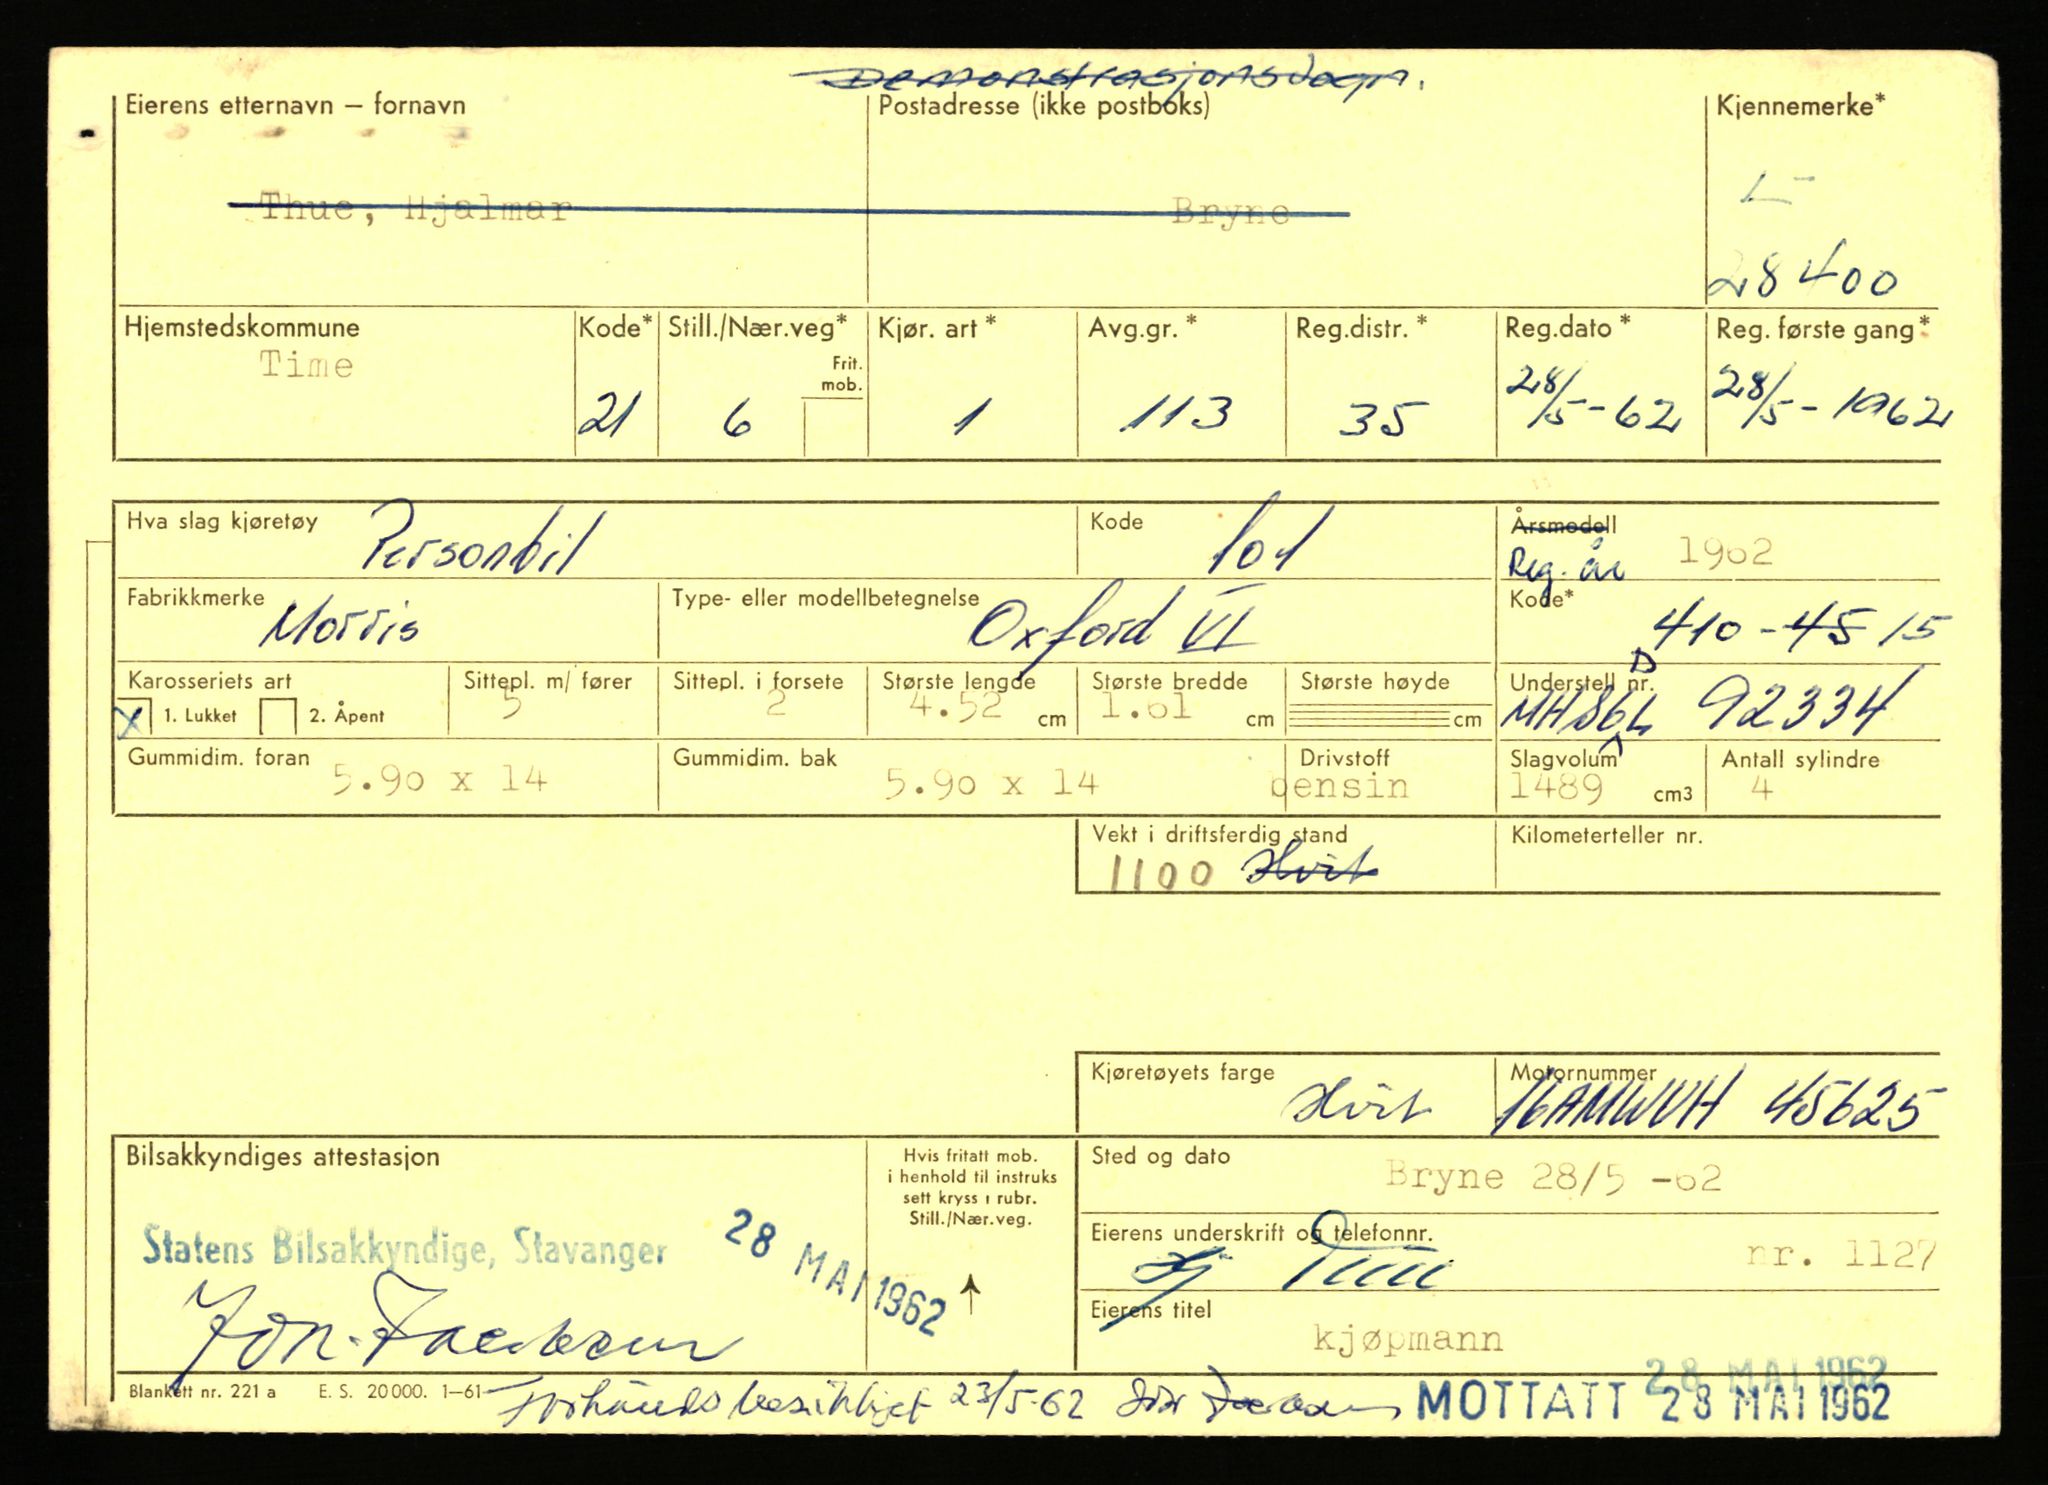 Demonstrasjonsvogn.
Eierens etternavn – fornavn Postadresse (ikke postboks) Kjennemerke*
L-
Thue, Hjalmar Bryne
28400
Hjemstedskommune Kode* Still./Nær.veg* Kjør. art* Avg.gr.* Reg.distr.* Reg.dato* Reg. første gang*
Time Frit. mob.
21 6 1 113 35 28/5-62 28/5-1962
Hva slag kjøretøy Personbil Kode 101 Årsmodell
Reg. år 1962
Fabrikkmerke Morris Type- eller modellbetegnelse Oxford VI Kode*
410-45 15
Karosseriets art Sittepl. m/ fører Sittepl. i forsete Største lengde Største bredde Største høyde Understell nr.
X 1. Lukket 2. Åpent 5 2 4.52 cm 1.61 cm cm D MHS6L 92334
Gummidim. foran Gummidim. bak Drivstoff Slagvolum Antall sylindre
5.90 x 14 5.90 x 14 bensin 1489 cm3 4
Vekt i driftsferdig stand Kilometerteller nr.
1100 Hvit
Kjøretøyets farge Motornummer
Hvit 16AMWVH 45625
Bilsakkyndiges attestasjon Hvis fritatt mob. Sted og dato
i henhold til instruks
sett kryss i rubr.
Still./Nær.veg.
Bryne 28/5 -62
Statens Bilsakkyndige, Stavanger 28 MAI 1962
Eierens underskrift og telefonnr.
Hj Thue nr. 1127
Jon. Jacobsen
Eierens titel
kjøpmann
Blankett nr. 221 a E. S. 20000. 1–61 Forhåndsbesiktiget 23/5-62 MOTTATT 28 MAI 1962
28 MAI 1962